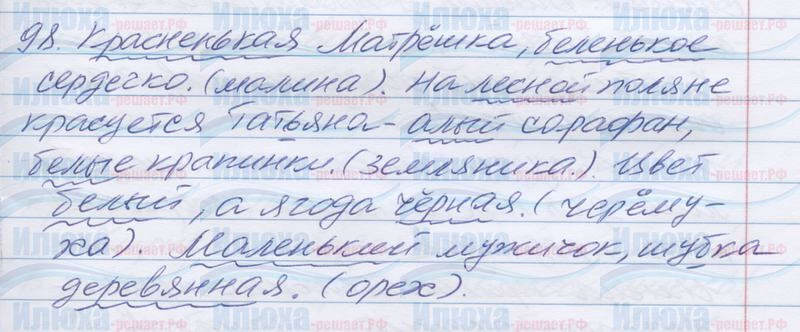 98. Красненькая Матрёшка, беленькое
сердечко. (малина). На лесной поляне
красуется Татьяна - алый сарафан,
белые крапинки. (земляника.). Цвет
белый, а ягода чёрная. (черёму-
ха). Маленький мужичок, шубка
деревянная. (орех).